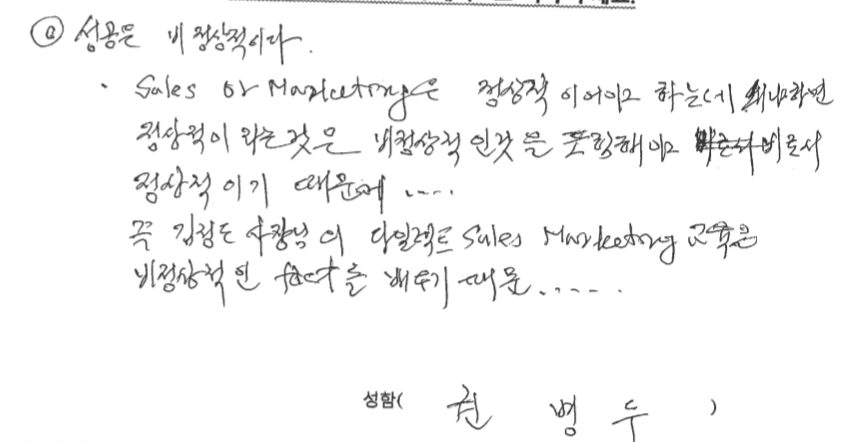 @ 성공은 비정상적이다.
· Sales or Marketing은 정상적이어야 하는데 왜냐하면
정상적이라는 것은 비정상적인것을 포함해야 비로서
정상적이기 때문에 .....
꼭 김정도 사장님의 다일렉트 Sales Marketing 교육은
비정상적인 fact를 배우기 때문......
성함( 권 병 두 )